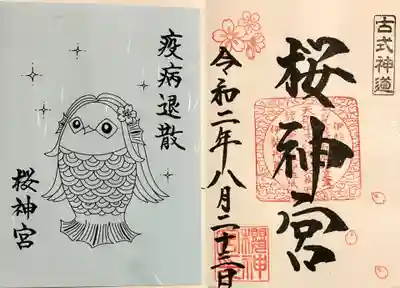 疫病退散
桜神宮
古式神道
桜神宮
令和二年八月二十三日